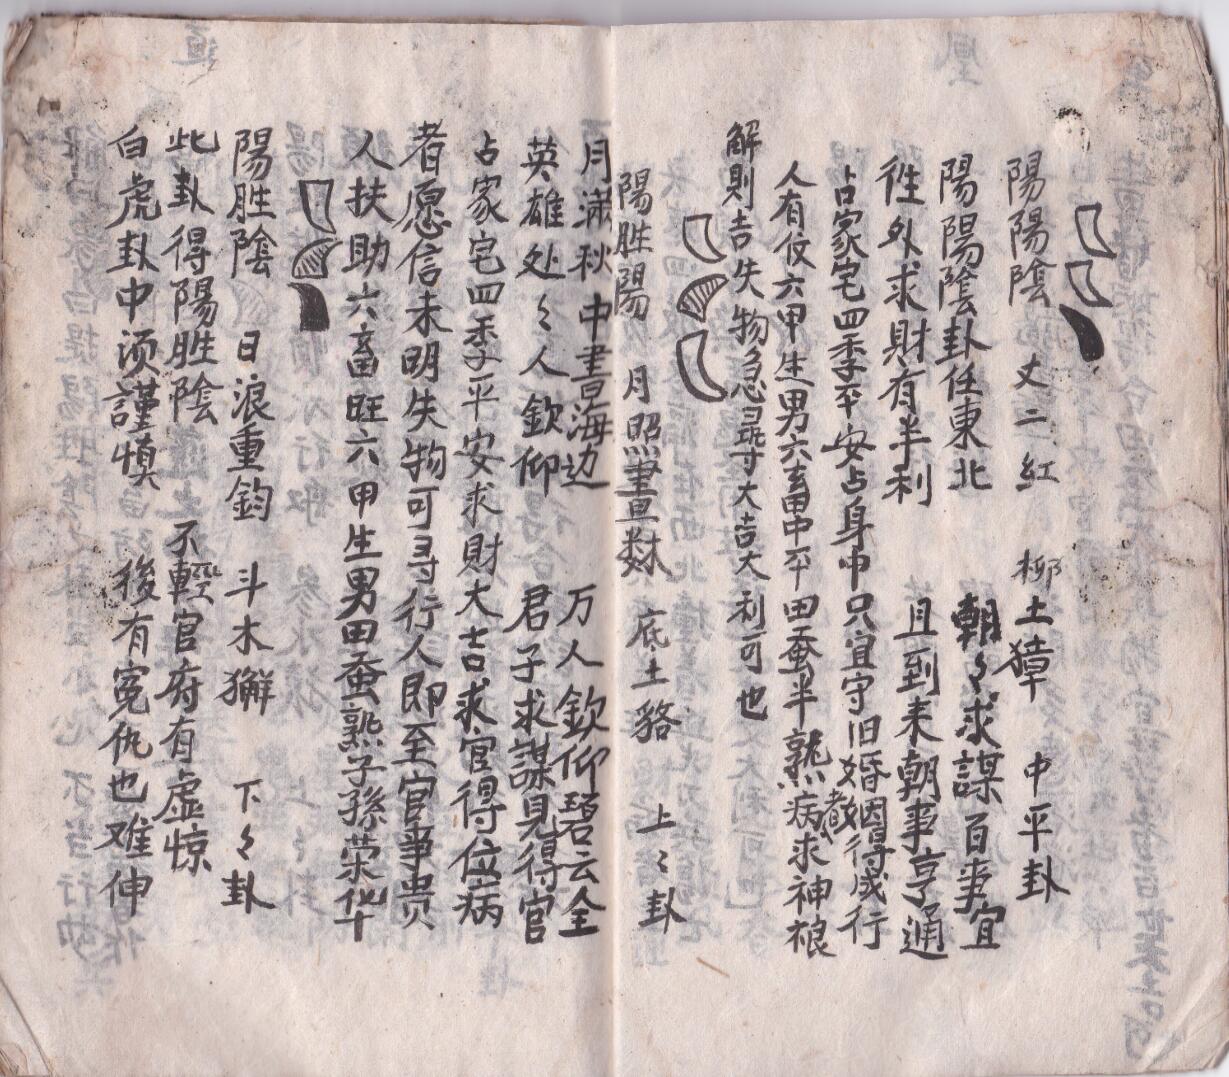 陽陽陰 丈二紅 柳土獐 中平卦
陽陽陰卦任東北 朝〻求謀百事宜
徃外求財有半利 且到耒朝事亨通
占家宅四季平安占身中只宜守旧婚姻得成行
人有伩六甲生男六畜中平田蚕半熟病者敬求神禳
解則吉失物急尋大吉大利可也
陽胜陽 月照書𣏌 底土貉 上〻卦
月滿秋中書海边 万人欽仰碧云全
英雄处〻人欽仰 君子求謀見得官
占家宅四季平安求財大吉求官得位病
者愿信未明失物可寻行人即至官事贵
人扶助六畜旺六甲生男田蚕熟子孫荣华
陽胜陰 日浪重鈞 斗木獬 下〻卦
此卦得陽胜陰 不輕官府有虚惊
白虎卦中须謹慎 後有冤仇也难伸